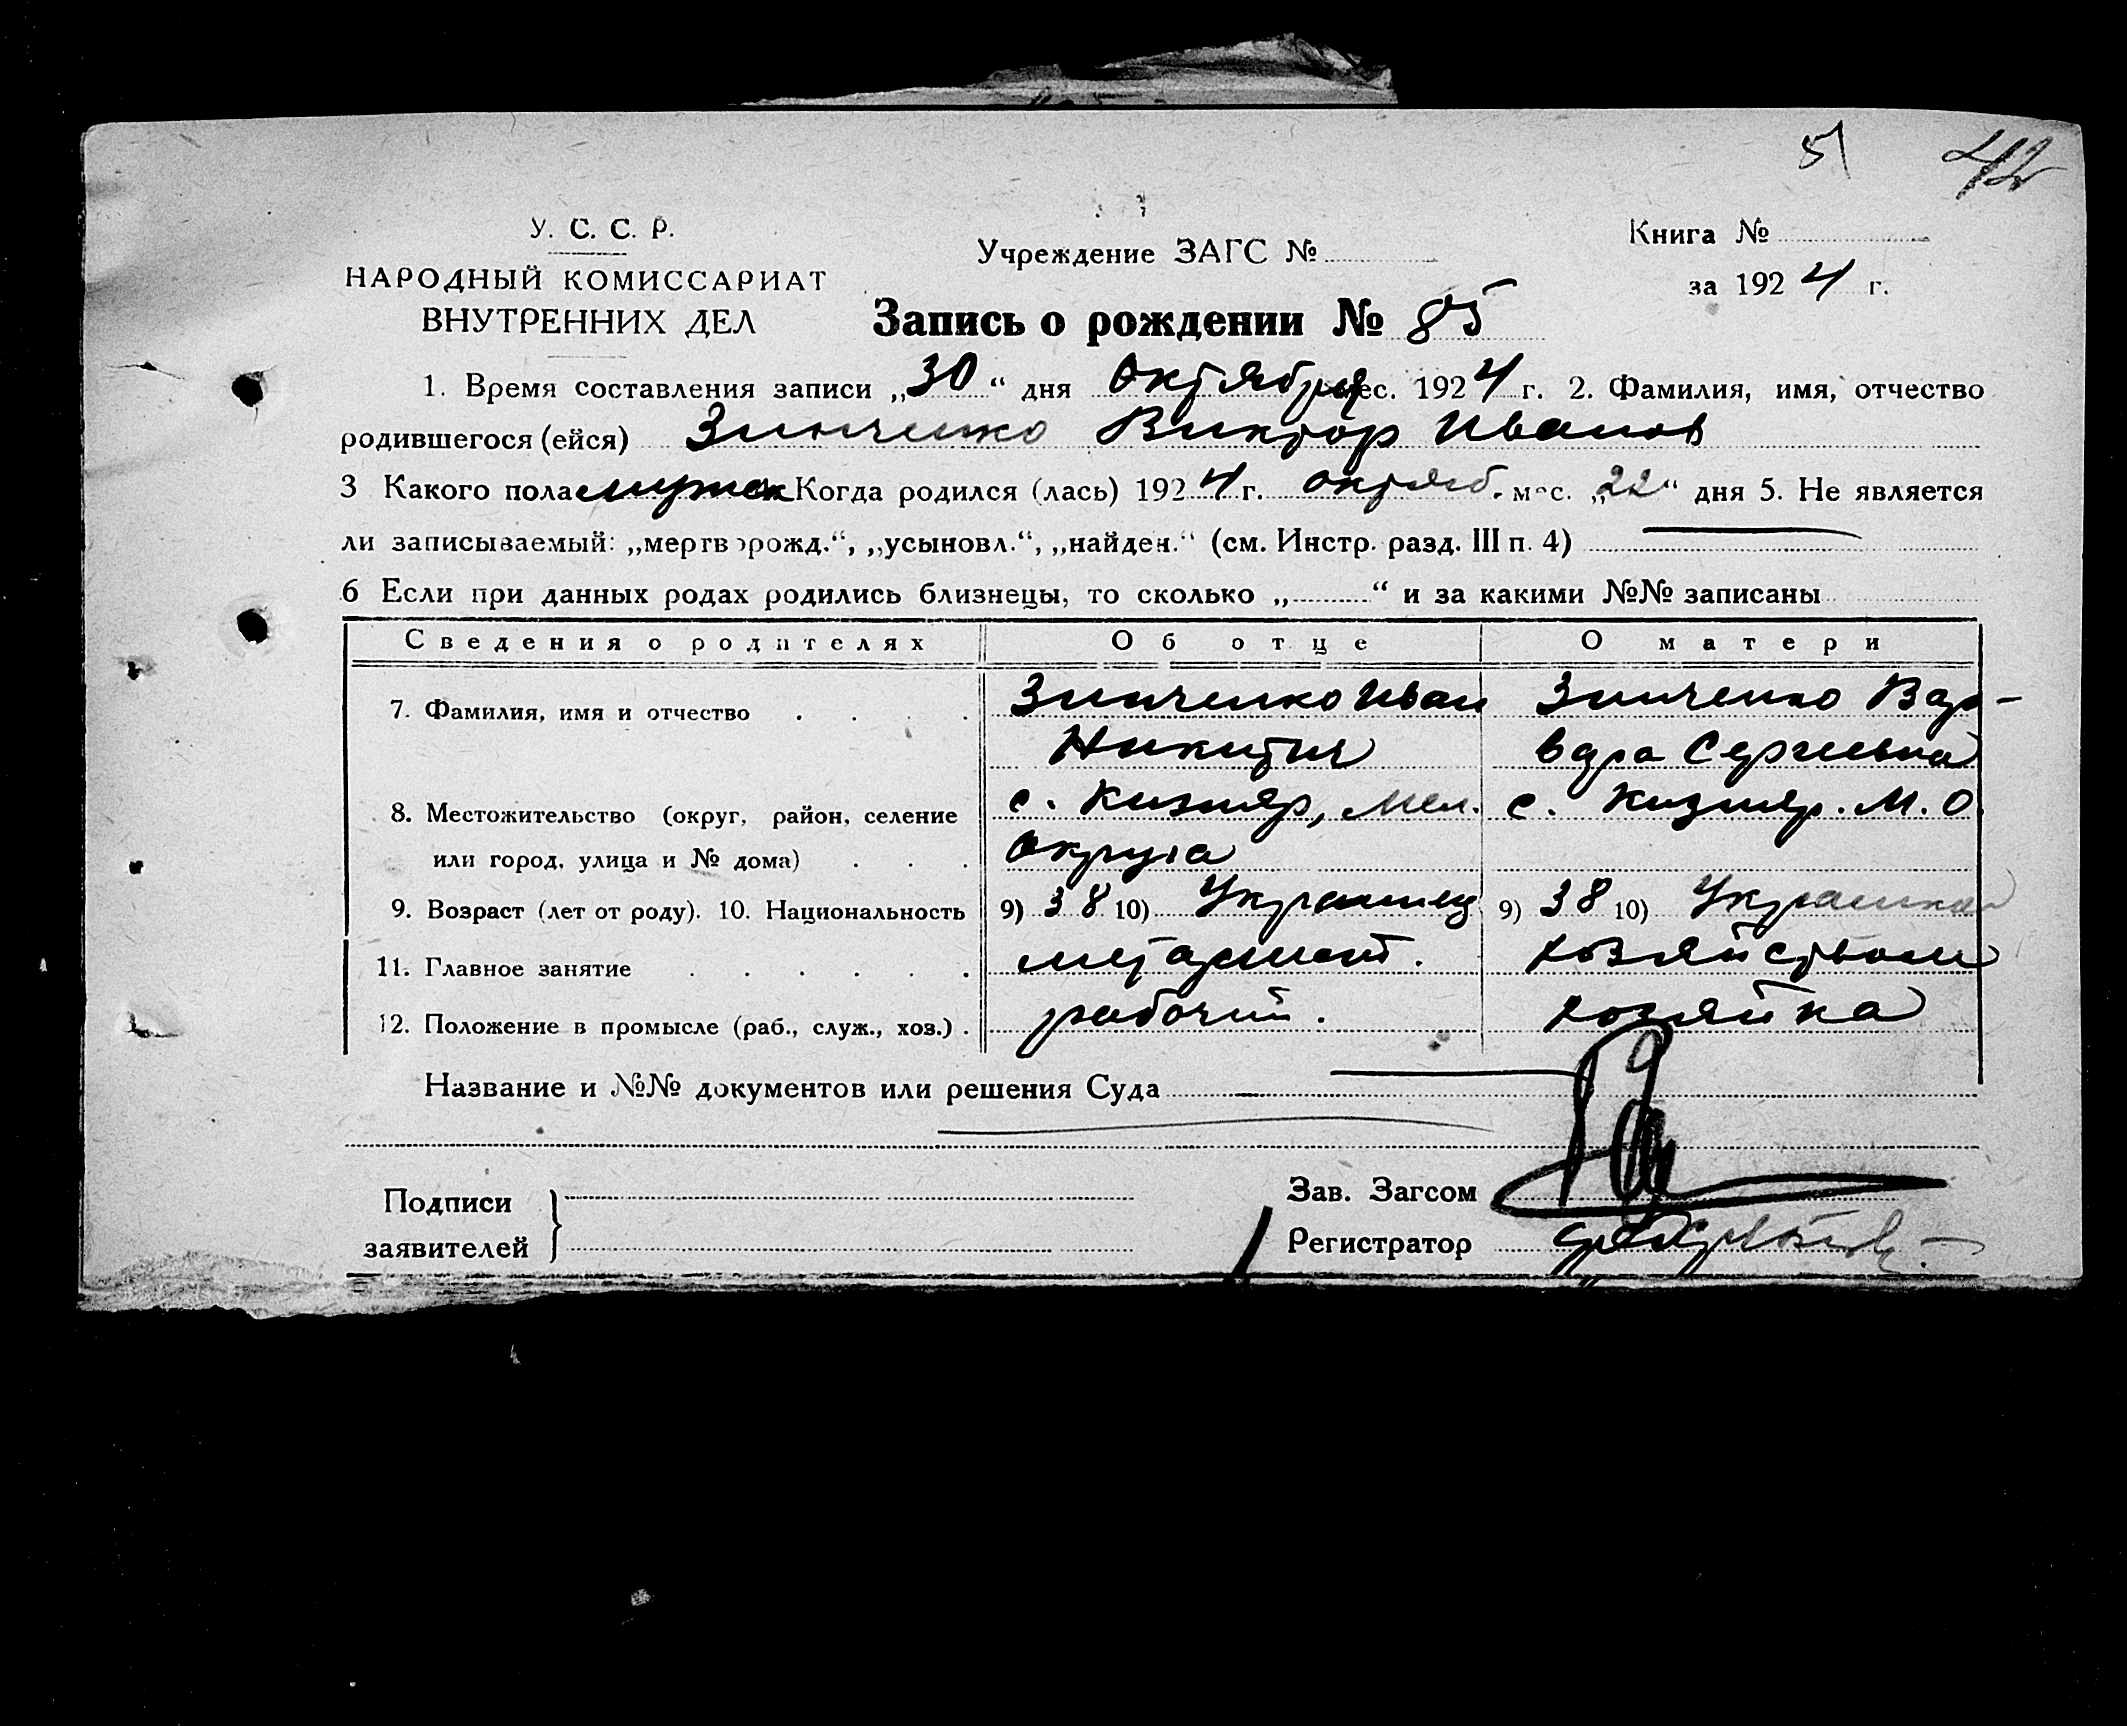 51 42
У. С. С. Р.
НАРОДНЫЙ КОМИССАРИАТ
ВНУТРЕННИХ ДЕЛ
Учреждение ЗАГС №
Книга №
за 1924 г.
Запись о рождении № 85
1. Время составления записи „30“ дня Октября мес. 1924 г. 2. Фамилия, имя, отчество
родившегося (ейся) Зинченко Виктор Иванов
3 Какого пола мужск Когда родился (лась) 1924 г. октяб. мес. „22“ дня 5. Не является
ли записываемый: „мертворожд.“, „усыновл.“, „найден.“ (см. Инстр. разд. III п. 4)
6 Если при данных родах родились близнецы, то сколько „ “ и за какими №№ записаны
Сведения о родителях Об отце О матери
7. Фамилия, имя и отчество Зинченко Иван Зинченко Вар-
Никитич вара Сергиевна
8. Местожительство (округ, район, селение с. Кизияр, Мел. с. Кизияр. М. О.
или город, улица и № дома) Округа
9. Возраст (лет от роду). 10. Национальность 9) 38 10) Украинец 9) 38 10) Украинка
11. Главное занятие хозяйством
12. Положение в промысле (раб., служ., хоз.) рабочий. хозяйка
Название и №№ документов или решения Суда
Подписи
заявителей
Зав. Загсом
Регистратор